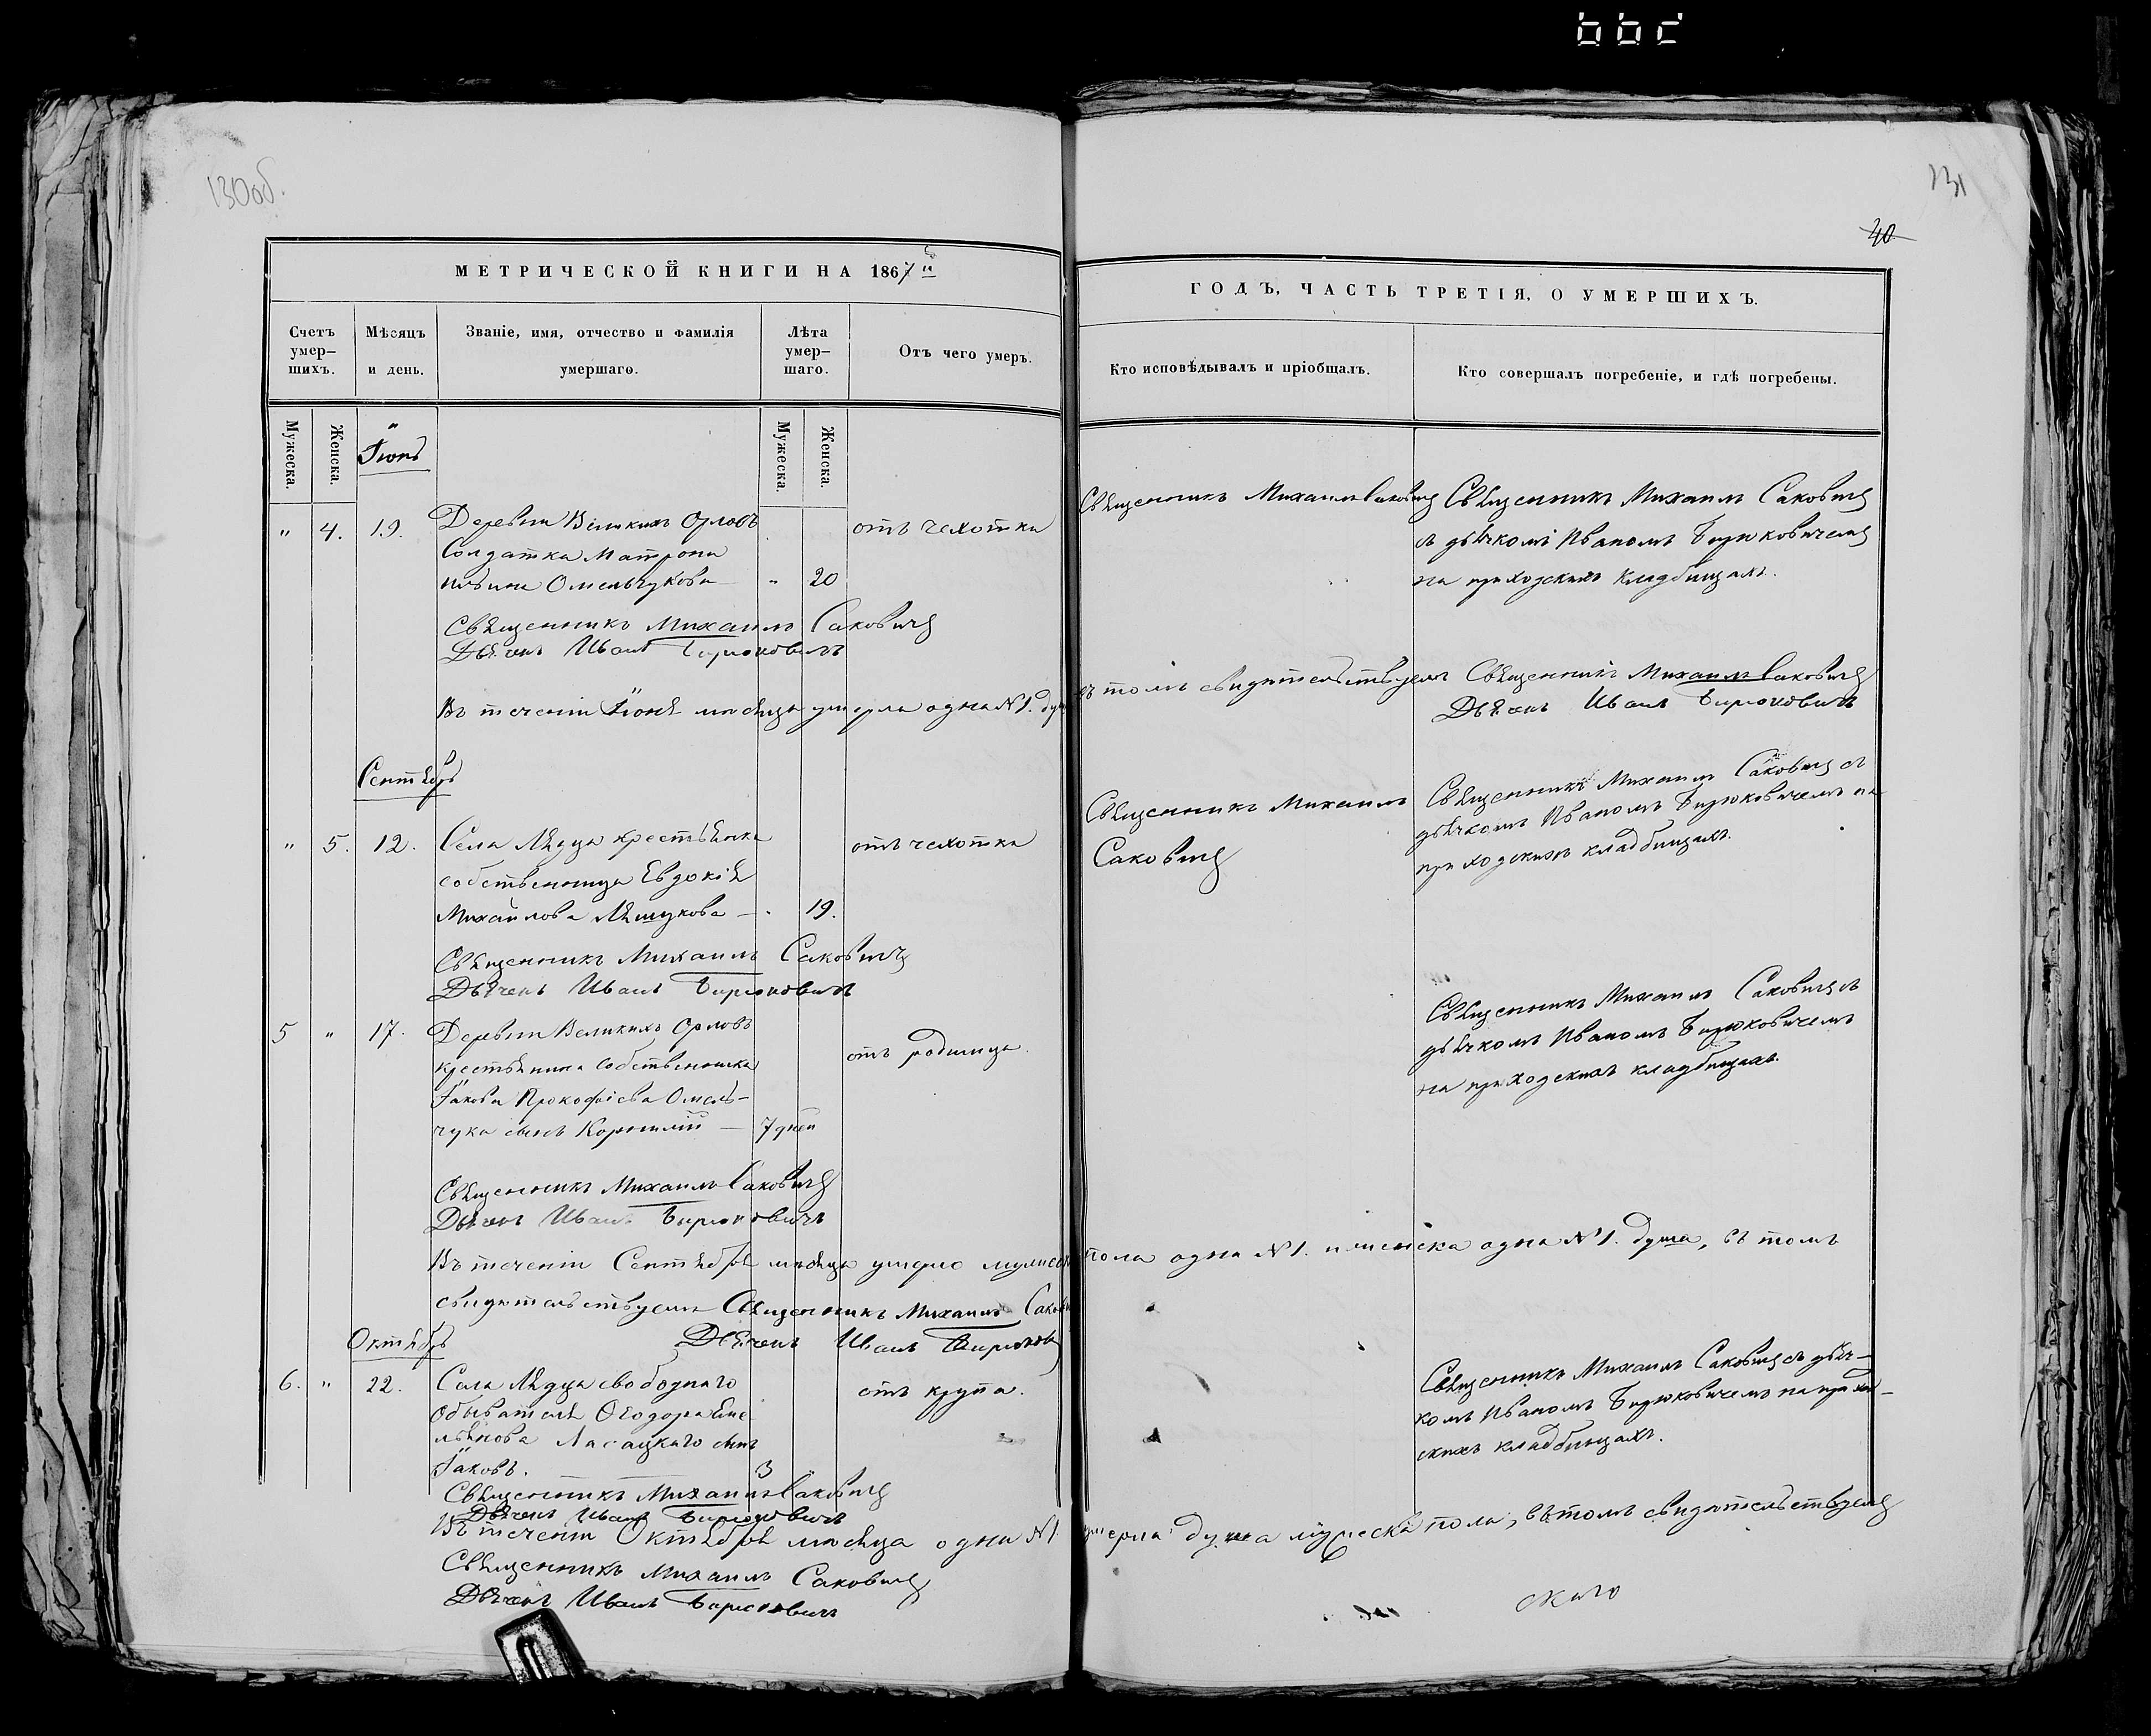 130об.
МЕТРИЧЕСКОЙ КНИГИ НА 1867
Счетъ умер–шихъ.
Мѣсяцъ и день.
Званіе, имя, отчество и фамилія умершаго.
Лѣта умер–шаго.
Отъ чего умеръ.
Мужеска.
Женска.
Мужеска.
Женска.
Іюнь
" 4. 19. Деревни Великихъ Орловъ отъ чахотки
Солдатка Матрона
Омельчукова — " 20
Священникъ Михаилъ Саковичъ
Дьячекъ Иванъ Бирюковичъ
Въ теченіи Іюня мѣсяца умерла одна №1. душа
Сентябрь
" 5. 12. Села Лядца крестьянка отъ чахотки
собственница Евдокія
Михайлова Лящукова — " 19.
Священникъ Михаилъ Саковичъ
Дьячекъ Иванъ Бирюковичъ
5 " 17. Деревни Великихъ Орловъ
крестьянина собственника отъ родимца.
Іакова Прокофіева Омель–
чука сынъ Корнилій — 7 дней
Священникъ Михаилъ Саковичъ
Дьячекъ Иванъ Бирюковичъ
Въ теченіи Сентября мѣсяца умерло мужеска
свидѣтельствуемъ Священникъ Михаилъ Саковичъ
Дьячекъ Иванъ Бирюкови
Октябрь
6. " 22. Села Лядца свободнаго отъ крупа.
обывателя Ѳеодора Еме
льянова Ласацкаго сынъ
Іаковъ. 3
Священникъ Михаилъ Саковичъ
Дьячекъ Иванъ Бирюковичъ
Въ теченіи Октября мѣсяца одна №1
Священникъ Михаилъ Саковичъ
Дьячекъ Иванъ Бирюковичъ
131
40
ГОДЪ, ЧАСТЬ ТРЕТІЯ, О УМЕРШИХЪ.
Кто исповѣдывалъ и пріобщалъ.
Кто совершалъ погребеніе, и гдѣ погребены.
Священникъ Михаилъ Саковичъ Священникъ Михаилъ Саковичъ
съ дьячкомъ Иваномъ Бирюковичемъ
на приходскихъ кладбищахъ.
въ томъ свидѣтельствуемъ Священникъ Михаилъ Саковичъ
Дьячекъ Иванъ Бирюковичъ
Священникъ Михаилъ Саковичъ съ
Священникъ Михаилъ дьячкомъ Иваномъ Бирюковичемъ на
Саковичъ приходскихъ кладбищахъ.
Священникъ Михаилъ Саковичъ съ
дьячкомъ Иваномъ Бирюковичемъ
на приходскихъ кладбищахъ.
пола одна №1. и женска одна №1. душа, въ томъ
Священникъ Михаилъ Саковичъ съ дьяч–
комъ Иваномъ Бирюковичемъ на приход–
скихъ кладбищахъ.
умерла душа мужеска пола, въ томъ свидѣтельствуемъ
скаго